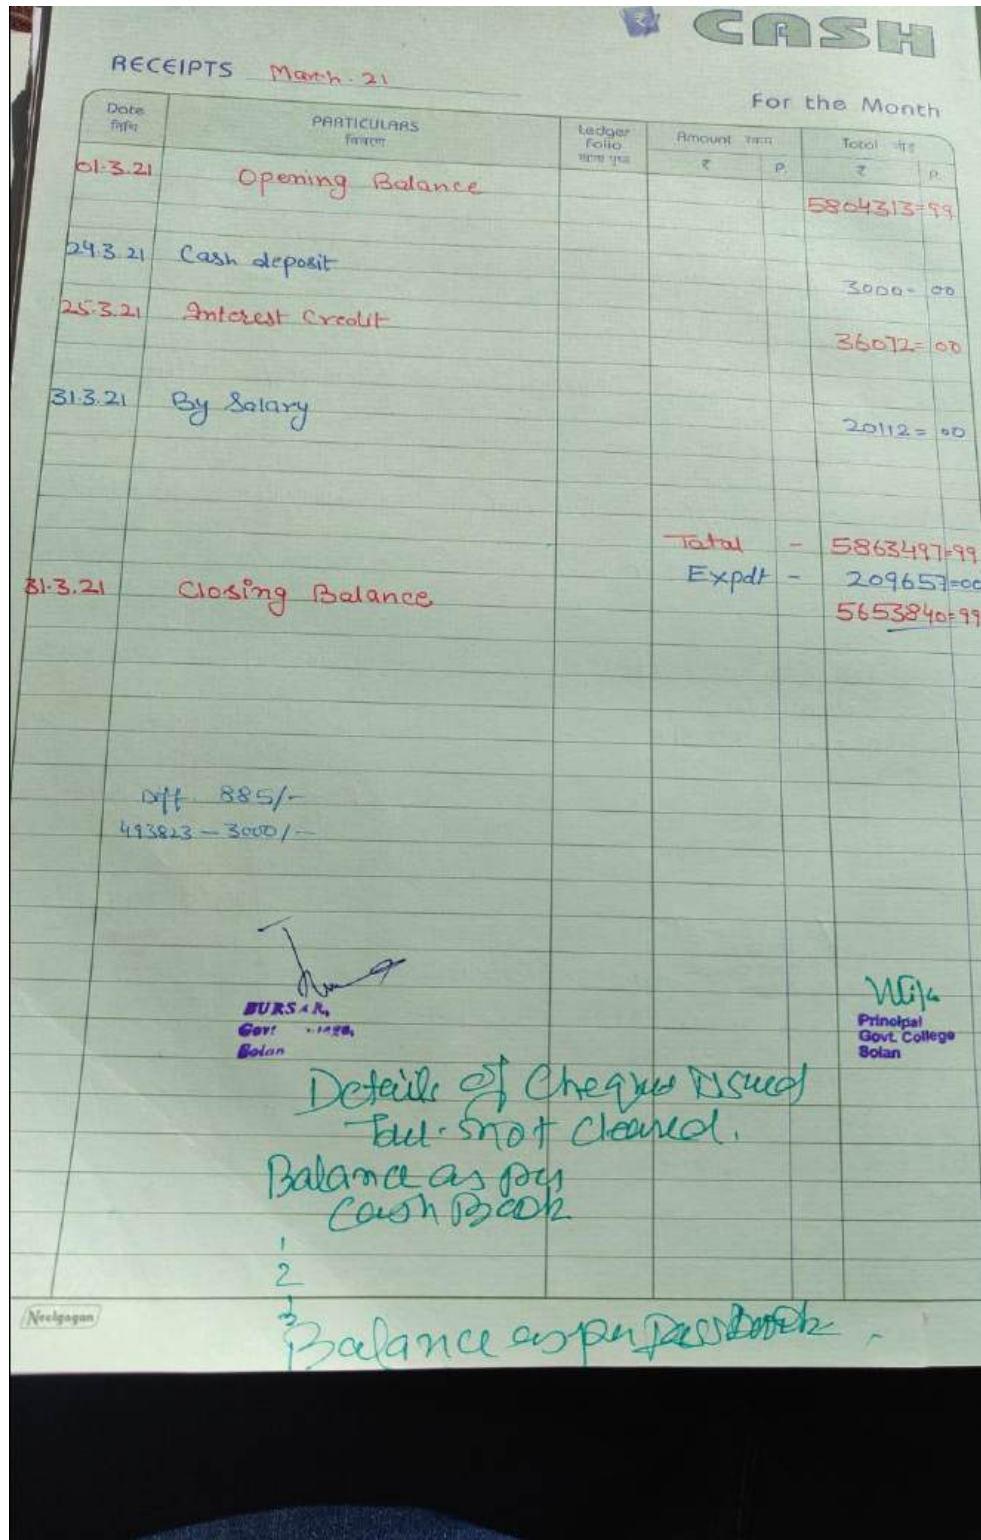 ₹ CASH
RECEIPTS March. 21
For the Month
Date PARTICULARS Ledger Folio Amount रकम Total जोड़
तिथि विवरण खाता पृष्ठ ₹ P. ₹ P.
01.3.21 Opening Balance 5804313=99
24.3.21 Cash deposit 3000=00
25.3.21 Interest Credit 36072=00
31.3.21 By Salary 20112=00
Total - 5863497=99
Expdt - 209657=00
31.3.21 Closing Balance 5653840=99
Diff 885/-
493823 - 3000/-
BURSAR,
Govt
Solan
Principal
Govt. College
Solan
Details of Cheques Issued
but not cleared.
Balance as per
Cash Book
1
2
3
Balance as per pass book.
Neelgagan